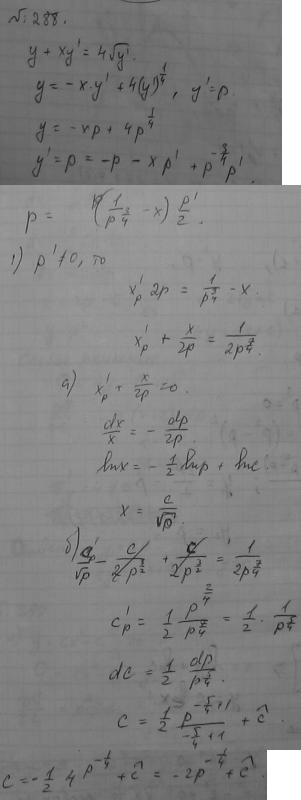 № 288.
y + xy' = 4√y'
y = -x·y' + 4(y')^{1/4}, y' = p.
y = -xp + 4p^{1/4}
y' = p = -p - xp' + p^{-3/4} p'
p = (1/p^{3/4} - x) p'/2.
1) p' ≠ 0, то
x'_p 2p = 1/p^{3/4} - x.
x'_p + x/2p = 1/2p^{7/4}.
а) x'_p + x/2p = 0.
dx/x = - dp/2p.
ln x = - 1/2 ln p + ln c.
x = c/√p
б) c'_p/√p - c/2p^{3/2} + c/2p^{3/2} = 1/2p^{7/4}
c'_p = 1/2 p^{2/4}/p^{7/4} = 1/2 · 1/p^{5/4}
dc = 1/2 dp/p^{5/4}.
c = 1/2 p^{-5/4+1}/(-5/4+1) + ĉ.
c = -1/2 4 p^{-1/4} + ĉ = -2p^{-1/4} + ĉ.